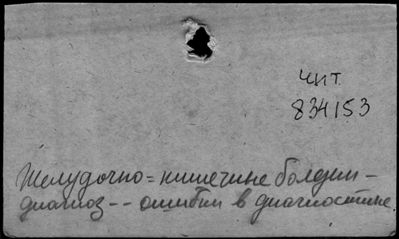 чит.
834153
Желудочно=кишечные болезни-
диагноз -- ошибки в диагностике.